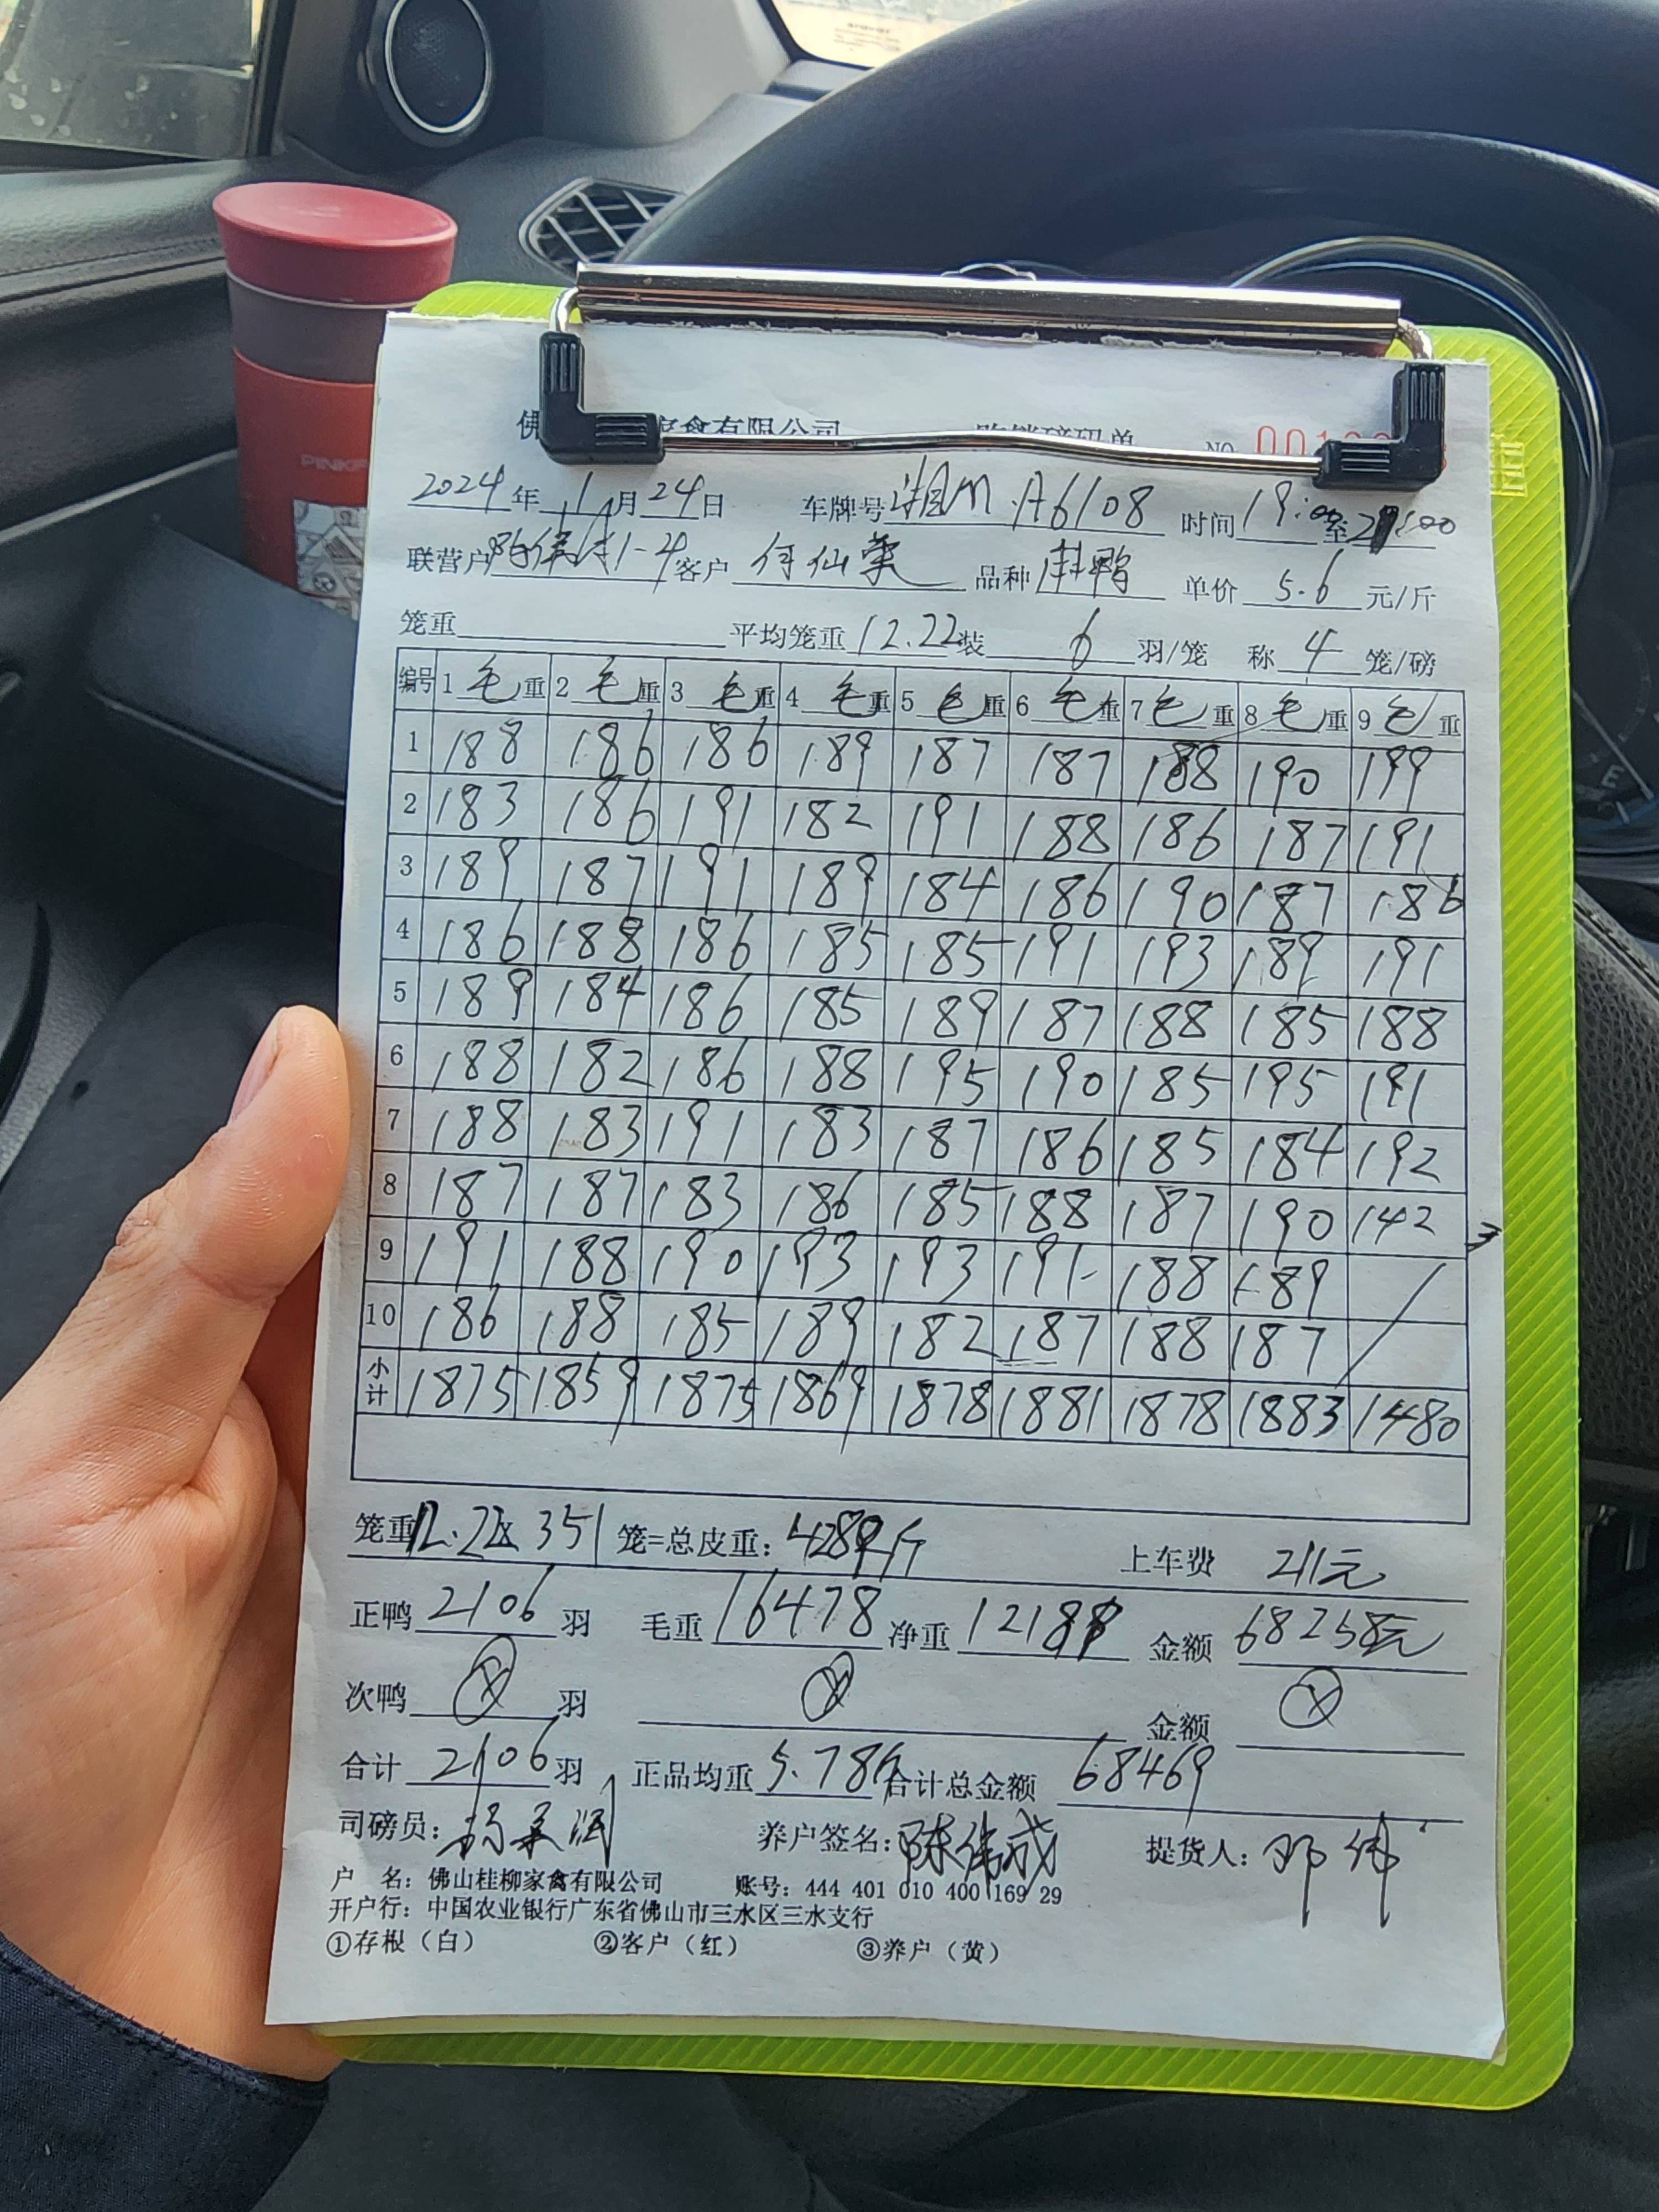 PINKF
佛 家禽有限公司 购销磅码单 NO 00100
2024年 1月 24日 车牌号 湘M·A6108 时间 19:00至21:00
联营户 1-4 客户 何仙 品种 鸭 单价 5.6 元/斤
笼重 平均笼重 12.22 装 6 羽/笼 称 4 笼/磅
编号 1 毛重 2 毛重 3 毛重 4 毛重 5 毛重 6 毛重 7 毛重 8 毛重 9 毛重
1 188 186 186 189 187 187 188 190 199
2 183 186 191 182 191 188 186 187 191
3 189 187 191 189 184 186 190 187 186
4 186 188 186 185 185 191 193 189 191
5 189 184 186 185 189 187 188 185 188
6 188 182 186 188 195 190 185 195 191
7 188 183 191 183 187 186 185 184 192
8 187 187 183 186 185 188 187 190 142 3
9 191 188 190 193 193 191 188 189
10 186 188 185 189 182 187 188 187
小计 1875 1859 1875 1869 1878 1881 1878 1883 1480
笼重 12.22x 351 笼=总皮重: 4289斤 上车费 211元
正鸭 2106 羽 毛重 16478 净重 12189 金额 68258元
次鸭 羽 金额
合计 2106 羽 正品均重 5.78斤 合计总金额 68469
司磅员: 养户签名: 陈伟成 提货人: 邓伟
户 名: 佛山桂柳家禽有限公司 账号: 444 401 010 400 169 29
开户行: 中国农业银行广东省佛山市三水区三水支行
①存根(白) ②客户(红) ③养户(黄)